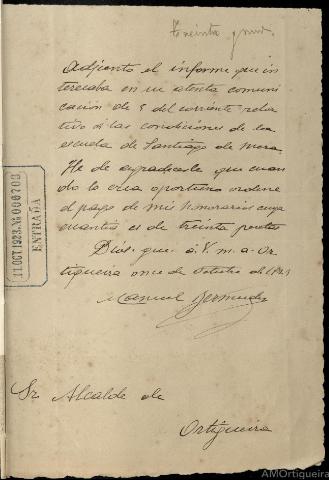 treinta
Adjunto el informe que in
teresaba en su atenta comuni
cación de 5 del corriente rela
tivo a las condiciones de la
escuela de Santiago de Mera
He de agradecerle que cuan
do lo crea oportuno ordene
el pago de mis honorarios cuya
cuantía es de treinta pesetas
Dios gue. a V. m. a. Or
tigueira once de Octubre de 1923
Manuel Bermudez
Sr. Alcalde de
Ortigueira
11 OCT 1923 № 000708
ENTRADA
AMOrtigueira